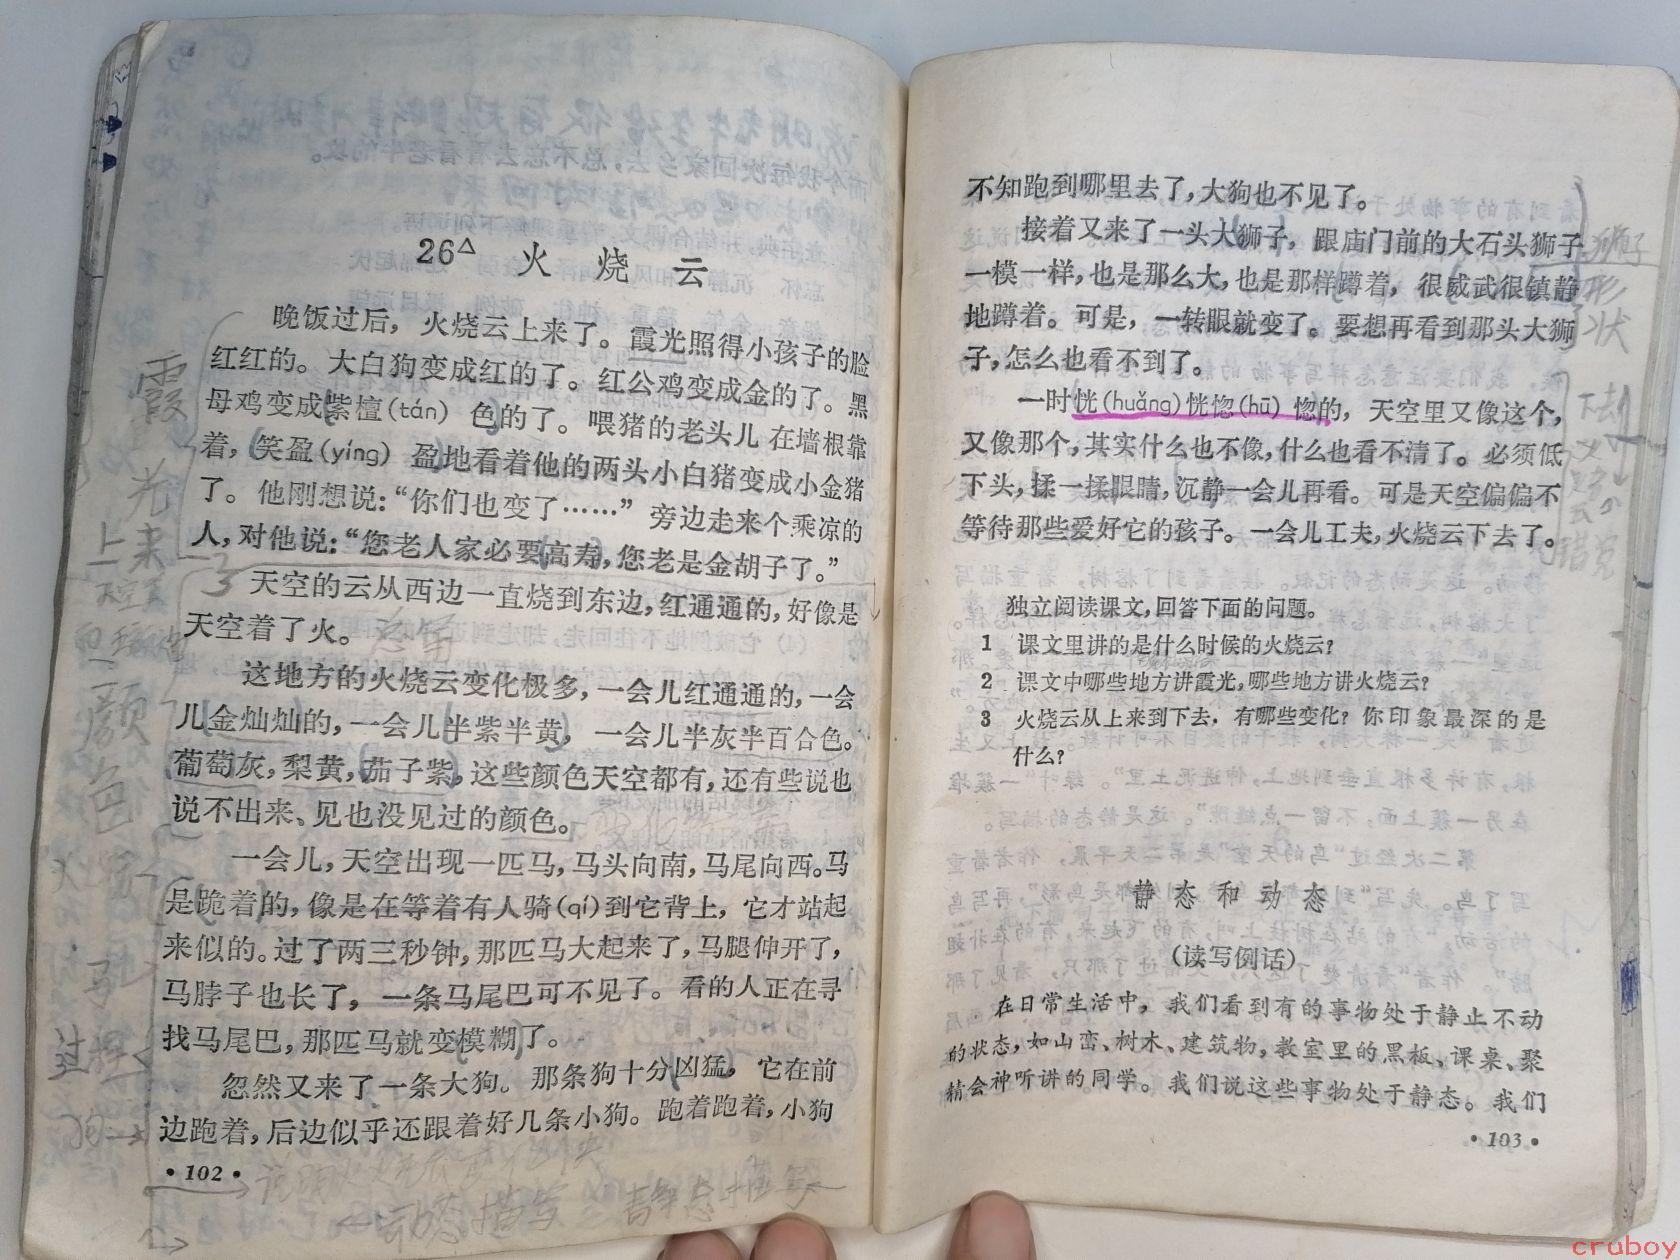 26△ 火 烧 云
晚饭过后，火烧云上来了。霞光照得小孩子的脸
红红的。大白狗变成红的了。红公鸡变成金的了。黑
母鸡变成紫檀(tán) 色的了。喂猪的老头儿在墙根靠
着，笑盈(yíng) 盈地看着他的两头小白猪变成小金猪
了。他刚想说：“你们也变了……” 旁边走来个乘凉的
人，对他说：“您老人家必要高寿，您老是金胡子了。”
天空的云从西边一直烧到东边，红通通的，好像是
天空着了火。
这地方的火烧云变化极多，一会儿红通通的，一会
儿金灿灿的，一会儿半紫半黄，一会儿半灰半百合色。
葡萄灰，梨黄，茄子紫，这些颜色天空都有，还有些说也
说不出来、见也没见过的颜色。
一会儿，天空出现一匹马，马头向南，马尾向西。马
是跪着的，像是在等着有人骑(qí)到它背上，它才站起
来似的。过了两三秒钟，那匹马大起来了，马腿伸开了，
马脖子也长了，一条马尾巴可不见了。看的人正在寻
找马尾巴，那匹马就变模糊了。
忽然又来了一条大狗。那条狗十分凶猛，它在前
边跑着，后边似乎还跟着好几条小狗。跑着跑着，小狗
• 102 •
霞
光
上来
颜
色
马
过程
狗
动态描写
不知跑到哪里去了，大狗也不见了。
接着又来了一头大狮子，跟庙门前的大石头狮子
一模一样，也是那么大，也是那样蹲着，很威武很镇静
地蹲着。可是，一转眼就变了。要想再看到那头大狮
子，怎么也看不到了。
一时恍(huǎng)恍惚(hū) 惚的，天空里又像这个，
又像那个，其实什么也不像，什么也看不清了。必须低
下头，揉一揉眼睛，沉静一会儿再看。可是天空偏偏不
等待那些爱好它的孩子。一会儿工夫，火烧云下去了。
狮子
形
状
下去
独立阅读课文，回答下面的问题。
1 课文里讲的是什么时候的火烧云？
2 课文中哪些地方讲霞光，哪些地方讲火烧云？
3 火烧云从上来到下去，有哪些变化？你印象最深的是
什么？
静 态 和 动 态
(读写例话)
在日常生活中，我们看到有的事物处于静止不动
的状态，如山峦、树木、建筑物，教室里的黑板、课桌、聚
精会神听讲的同学。我们说这些事物处于静态。我们
• 103 •
cruboy